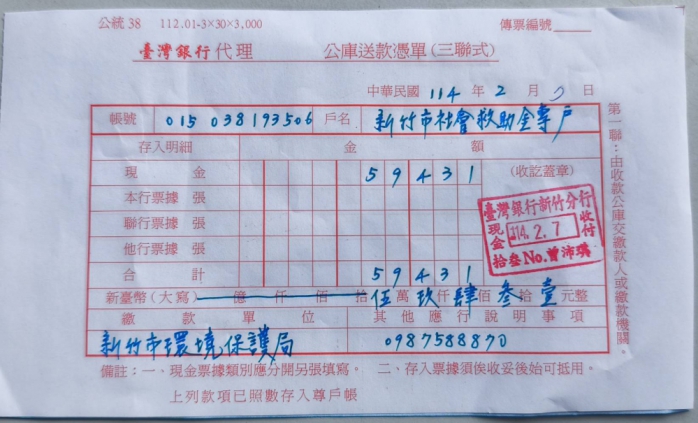 公統 38 112.01-3×30×3,000 傳票編號
臺灣銀行代理 公庫送款憑單(三聯式)
中華民國 114 年 2 月 7 日
帳號 015 038193506 戶名 新竹市社會救助金專戶
存入明細 金額
現金 59431 (收訖蓋章)
本行票據 張
聯行票據 張
他行票據 張
合計 59431
臺灣銀行新竹分行
現金 114.2.7 收付
拾叁No.曾沛琪
新臺幣(大寫) 億仟佰拾伍萬玖仟肆佰叁拾壹元整
繳款單位 其他應行說明事項
新竹市環境保護局 0987588870
備註:一、現金票據類別應分開另張填寫。 二、存入票據須俟收妥後始可抵用。
上列款項已照數存入尊戶帳
第一聯:由收款公庫交繳款人或繳款機關。